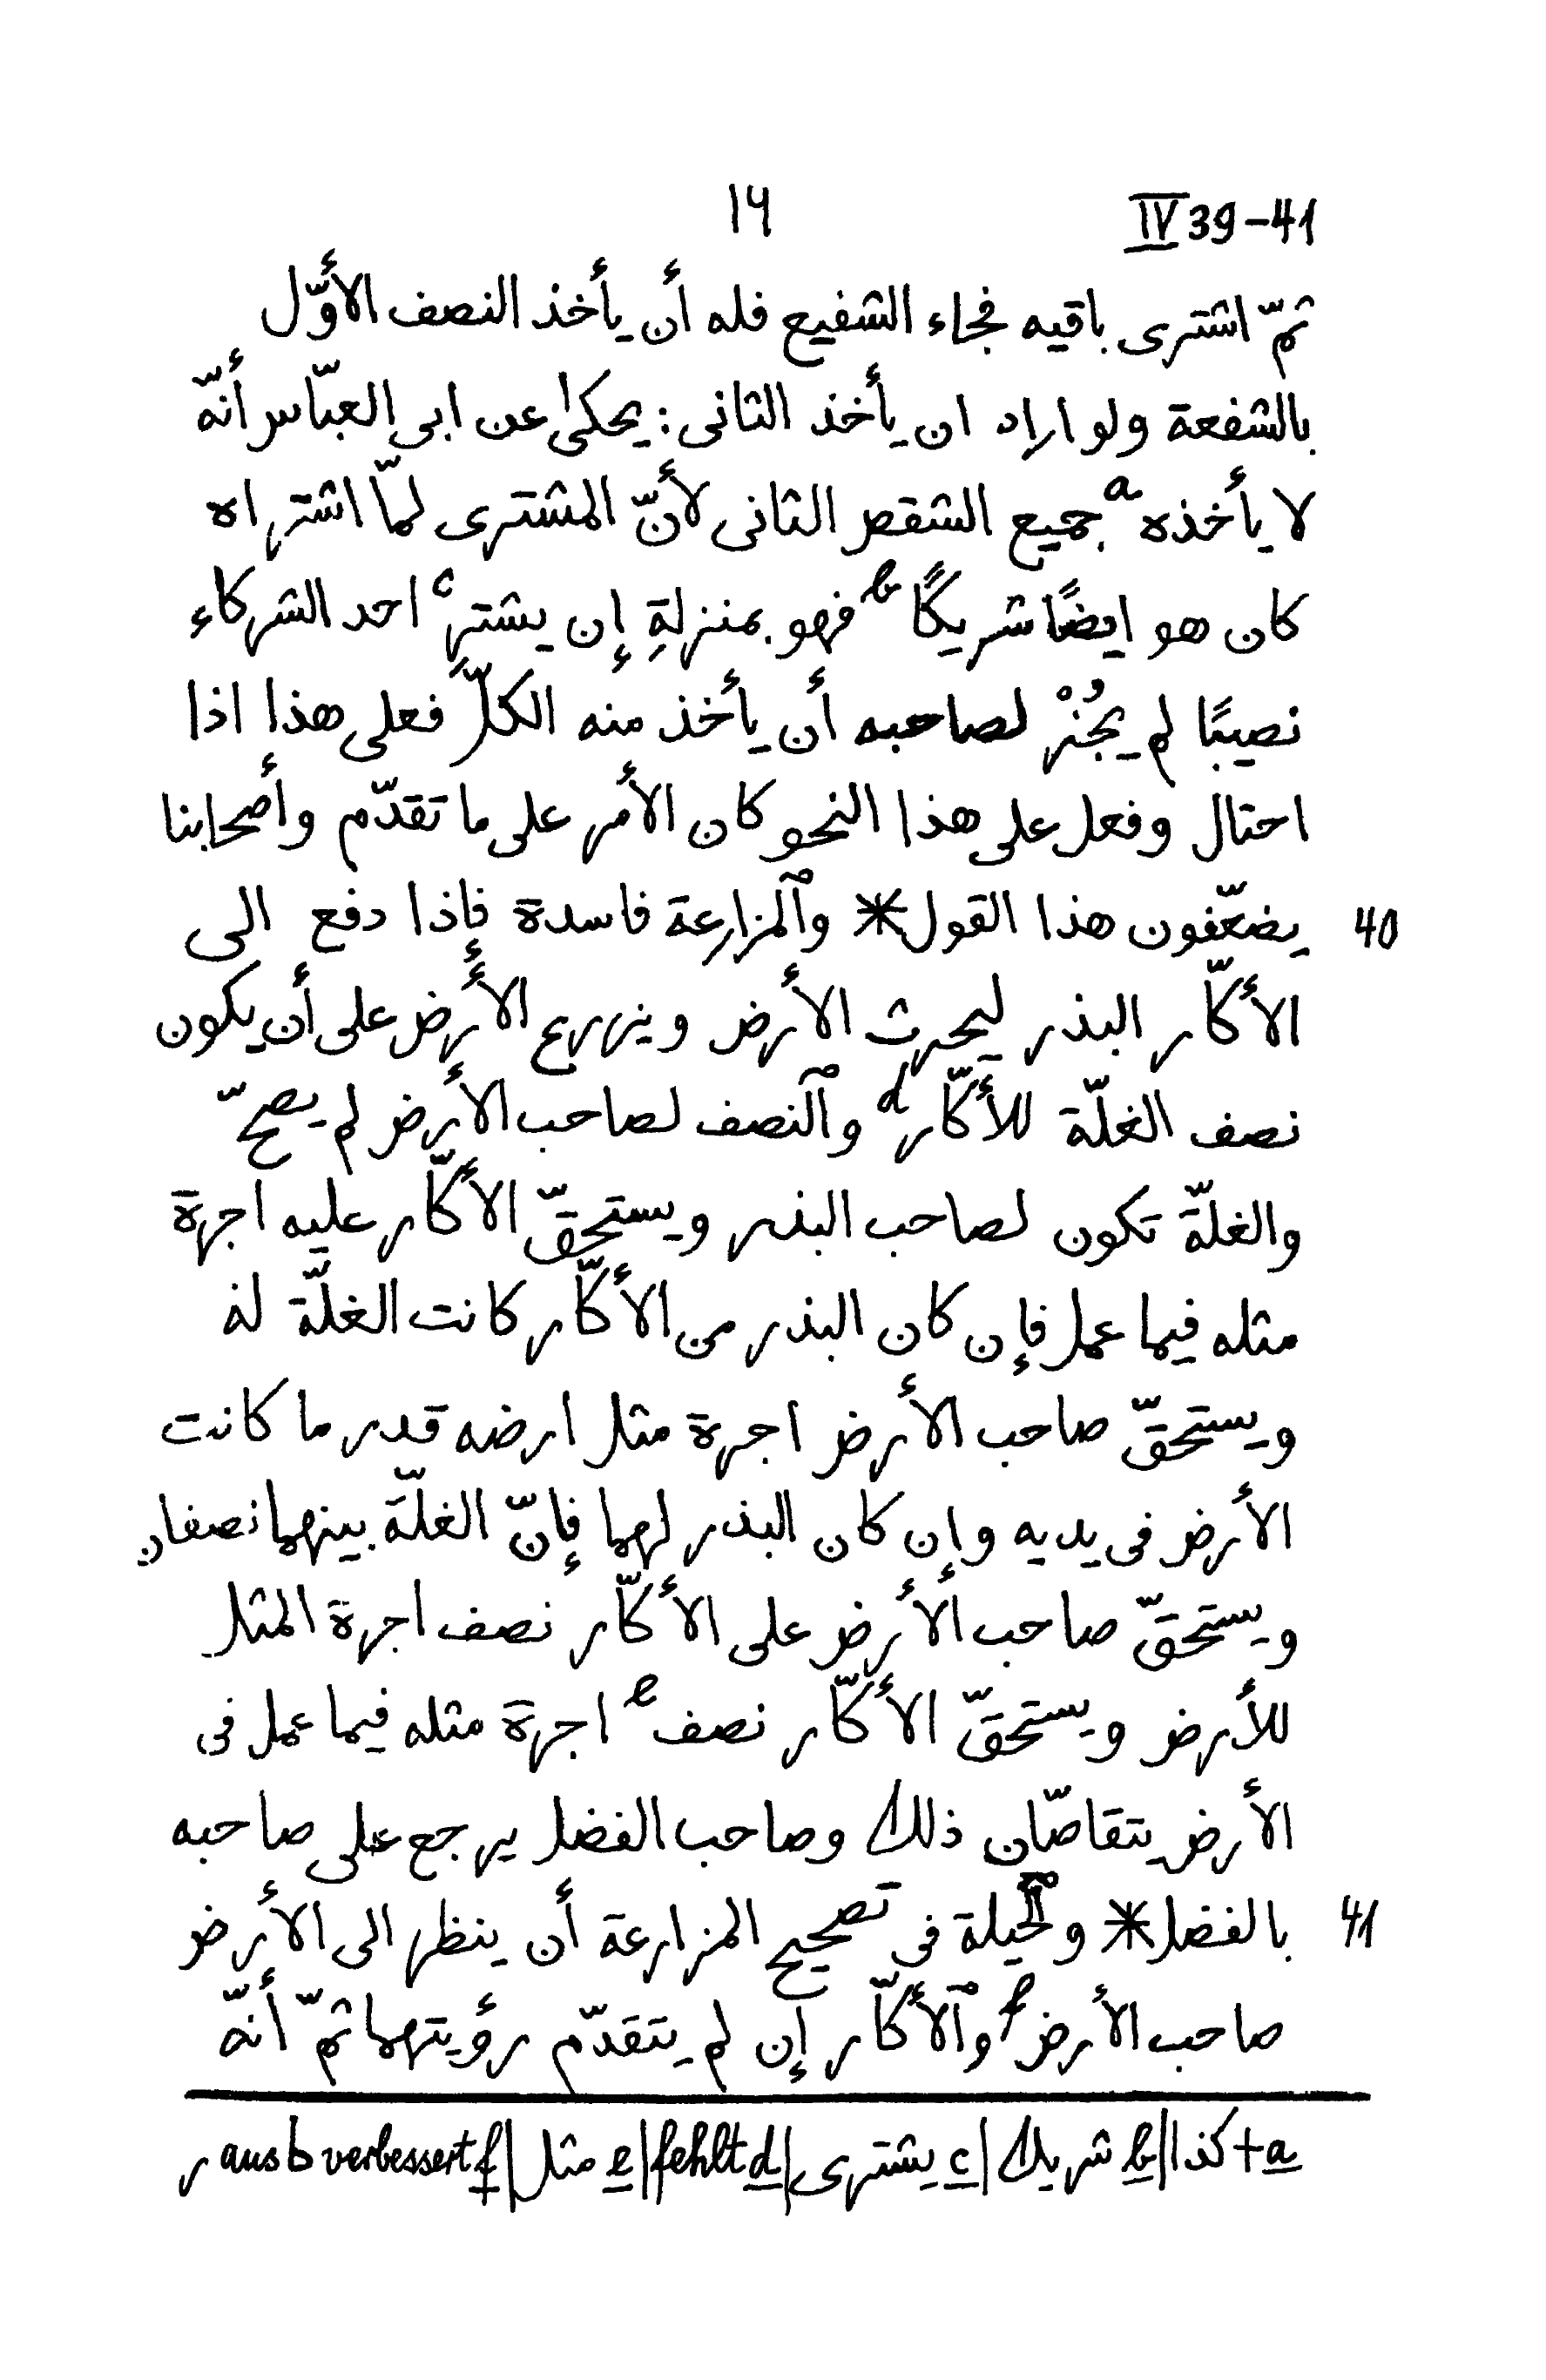 IV 39-41 ١٦
ثمّ اشترى باقيه فجاء الشفيع فله أن يأخذ النصف الأوّل
بالشفعة ولو اراد ان يأخذ الثانى: يحكىٰ عن ابى العبّاس أنّه
لا يأخذه a جميع الشقص الثانى لأنّ المشترى لمّا اشتراه
كان هو ايضًا شريكًا b فهو بمنزلةِ إن يشتر c احد الشركاء
نصيبًا لم يجُزْ لصاحبه أن يأخذ منه الكلَّ فعلى هذا اذا
احتال وفعل على هذا النحو كان الأمر على ما تقدّم وأصحابنا
40 يضعّفون هذا القول * وٱلمزارعة فاسدة فإذا دفع الى
الأكّار البذر ليحرث الأرض ويزرع الأرض على أن يكون
نصف الغلّة للأكّار d وٱلنصف لصاحب الأرض لم يصحّ
والغلّة تكون لصاحب البذر ويستحقّ الأكّار عليه اجرة
مثله فيما عمل فإن كان البذر من الأكّار كانت الغلّة له
ويستحقّ صاحب الأرض اجرة مثل ارضه قدر ما كانت
الأرض فى يديه وإن كان البذر لهما فإنّ الغلّة بينهما نصفان
ويستحقّ صاحب الأرض على الأكّار نصف اجرة المثل
للأرض ويستحقّ الأكّار نصف e اجرة مثله فيما عمل فى
الأرض يتقاصّان ذلك وصاحب الفضل يرجع على صاحبه
41 بالفضل * وٱلحيلة فى تصحيح المزارعة أن ينظر الى الأرض
صاحب الأرض f وٱلأكّار إن لم يتقدّم رؤيتهما ثمّ أنّه
a + كذا | b شريك | c يشترى | d fehlt | e مثل | f verbessert aus b ر